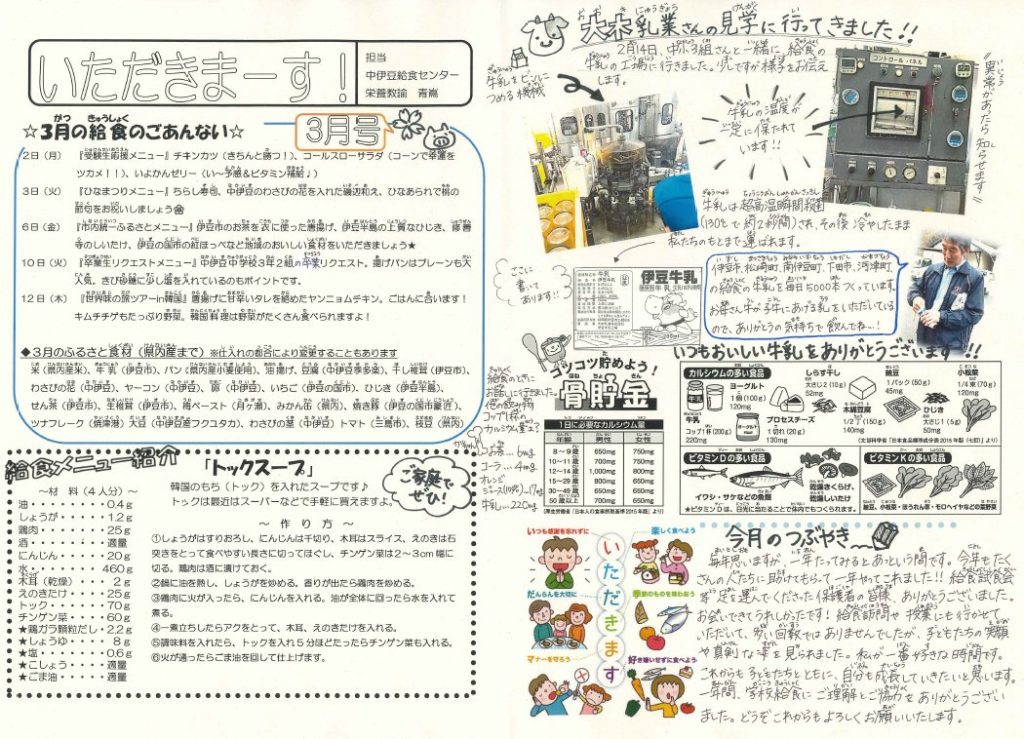 いただきまーす！
担当
中伊豆給食センター
栄養教諭　青嶌
☆3月の給食のごあんない☆
3月号
2日（月）　『受験生応援メニュー』チキンカツ（きちんと勝つ！）、コールスローサラダ（コーンで幸運を
ツカメ！！）、いよかんゼリー（い～予感＆ビタミン補給♩）
3日（火）　『ひなまつりメニュー』ちらし寿司、中伊豆のわさびの花を入れた磯辺和え、ひなあられで桃の
節句をお祝いしましょう
6日（金）　『市内統一ふるさとメニュー』伊豆市のお茶を衣に使った唐揚げ、伊豆半島の上質なひじき、修善
寺のしいたけ、伊豆の国市の紅ほっぺなど地場のおいしい食材をいただきましょう★
10日（火）　『卒業生リクエストメニュー』中伊豆中学校3年2組の卒業リクエスト。揚げパンはプレーンも大
人気。きび砂糖に少し塩を入れているのもポイントです。
12日（木）　『世界味の旅ツアーin韓国』唐揚げに甘辛いタレを絡めたヤンニョムチキン。ごはんに合います！
キムチチゲもたっぷり野菜。韓国料理は野菜がたくさん食べられますよ！
◆3月のふるさと食材（県内産まで）※仕入れの都合により変更することもあります
米（県内産米）、牛乳（伊豆市）、パン（県内産小麦使用）、油揚げ、豆腐（中伊豆季多楽）、干し椎茸（伊豆市）、
わさびの花（中伊豆）、ヤーコン（中伊豆）、（中伊豆）、いちご（伊豆の国市）、ひじき（伊豆半島）、
せん茶（伊豆市）、生椎茸（伊豆市）、梅ペースト（月ヶ瀬）、みかん缶（県内）、焼き豚（伊豆の国市）、
ツナフレーク（焼津港）大豆（中伊豆産フクユタカ）、わさびの茎（中伊豆）トマト（三島市）、枝豆（県内）
給食メニュー紹介
「トックスープ」
韓国のもち（トック）を入れたスープです♪
トックは最近はスーパーなどで手軽に買えますよ。
ご家庭で
ぜひ！
～材　料（4人分）～
油・・・・・・・・0.4g
しょうが・・・・・1.2g
鶏肉・・・・・・・25g
酒・・・・・・・・適量
にんじん・・・・・20g
水・・・・・・・・460g
木耳（乾燥）・・・2g
えのきだけ・・・・25g
トック・・・・・・70g
チンゲン菜・・・・60g
★鶏ガラ顆粒だし・2.2g
★しょうゆ・・・・8g
★塩・・・・・・・0.6g
★こしょう・・・・適量
★ごま油・・・・・適量
～作り方～
①しょうがはすりおろし、にんじんは千切り、木耳はスライス、えのきは石
突きをとって食べやすい長さに切ってほぐし、チンゲン菜は2～3cm幅に
切る。鶏肉は酒に漬けておく。
②鍋に油を熱し、しょうがを炒める。香りが出たら鶏肉を炒める。
③鶏肉に火が入ったら、にんじんを入れる。油が全体に回ったら水を入れて
煮る。
④一煮立ちしたらアクをとって、木耳、えのきだけを入れる。
⑤調味料を入れたら、トックを入れ5分ほどたったらチンゲン菜も入れる。
⑥火が通ったらごま油を回して仕上げます。
大木乳業さんの見学に行ってきました!!
2月14日、中ホ3組さんと一緒に、給食の
牛乳の工場に行きました。少しですが様子をお伝え
します。
牛乳をビンに
つめる機械
牛乳の温度が
一定に保たれて
います!!
コントロール パネル
異常があったら知らせます
牛乳は超高温瞬間殺菌
(130℃で約2秒間)され、その後冷やしたまま
私たちのもとまで運ばれます。
ここに
書いて
あります!!
伊豆牛乳
伊豆市、松崎町、南伊豆町、下田市、河津町
の給食の牛乳を毎日5000本つくっています。
お母さん牛が子牛にあげる乳をいただいている
ので、ありがとうの気持ちで飲んでね…!
いつもおいしい牛乳をありがとうございます!!
コツコツ貯めよう！
骨貯金
1日に必要なカルシウム量
年齢　男性　女性
8～9歳　650mg　750mg
10～11歳　700mg　750mg
12～14歳　1,000mg　800mg
15～29歳　800mg　650mg
30～49歳　650mg　650mg
50歳以上　700mg　650mg
（厚生労働省「日本人の食事摂取基準2015年版」）
給食のときに
お話に行きました。
コップ1杯の
カルシウム量は?
コーラ…4mg
オレンジ
ジュース(100%)…17mg
牛乳…220mg
カルシウムの多い食品
牛乳
コップ1杯（200g）
220mg
ヨーグルト
1個（100g）
120mg
プロセスチーズ
1切れ（20g）
130mg
しらす干し
大さじ2（10g）
52mg
木綿豆腐
1/2丁（150g）
140mg
納豆
1パック（50g）
45mg
ひじき
大さじ1（5g）
50mg
小松菜
1/4束（70g）
120mg
（文部科学省「日本食品標準成分表2015年版（七訂）」より）
ビタミンDの多い食品
イワシ・サケなどの魚類
乾燥きくらげ、
乾燥しいたけ
★ビタミンDは、日光に当たることで体内でもつくられます。
ビタミンKの多い食品
納豆、小松菜・ほうれん草・モロヘイヤなどの葉野菜
いつも感謝を忘れずに
楽しく食べよう
だんらんを大切に
季節のものを味わおう
マナーを守ろう
好き嫌いせずに食べよう
いただきます
今月のつぶやき
毎年思いますが、一年たってみるとあっという間です。今年もたく
さんの人たちに助けてもらって一年やってこれました!! 給食試食会
等で足を運んでくださった保護者の皆様、ありがとうございました。
お会いできてうれしかったです！給食訪問や授業にも行かせて
いただいて、多い回数ではありませんでしたが、子どもたちの笑顔
や真剣な姿を見られました。私が一番好きな時間です。
これからも子どもたちとともに、自分も成長していきたいと思います。
一年間、学校給食にご理解とご協力をありがとうござい
ました。どうぞこれからもよろしくお願いいたします。